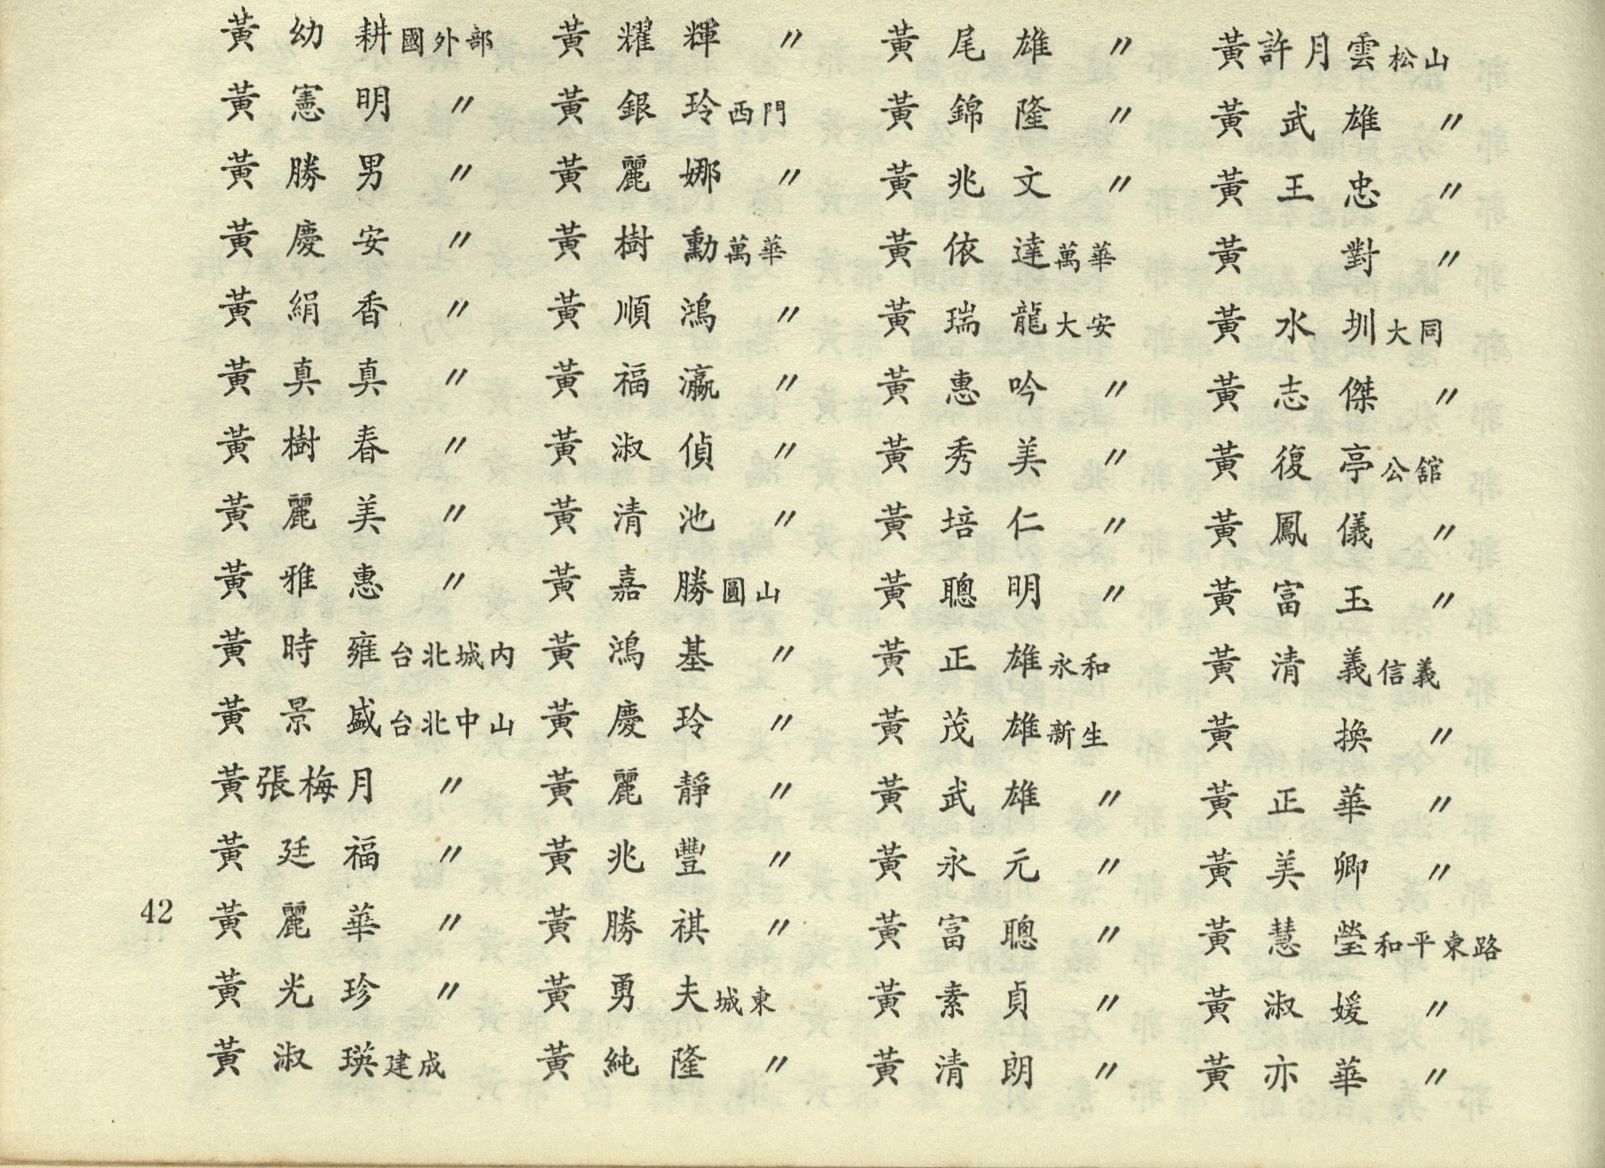 黃幼耕國外部
黃憲明〃
黃勝男〃
黃慶安〃
黃絹香〃
黃真真〃
黃樹春〃
黃麗美〃
黃雅惠〃
黃時雍台北城內
黃景盛台北中山
黃張梅月〃
黃廷福〃
黃麗華〃
黃光珍〃
黃淑瑛建成
黃耀輝〃
黃銀玲西門
黃麗娜〃
黃樹勳萬華
黃順鴻〃
黃福瀛〃
黃淑偵〃
黃清池〃
黃嘉勝圓山
黃鴻基〃
黃慶玲〃
黃麗靜〃
黃兆豐〃
黃勝祺〃
黃勇夫城東
黃純隆〃
黃尾雄〃
黃錦隆〃
黃兆文〃
黃依達萬華
黃瑞龍大安
黃惠吟〃
黃秀美〃
黃培仁〃
黃聰明〃
黃正雄永和
黃茂雄新生
黃武雄〃
黃永元〃
黃富聰〃
黃素貞〃
黃清朗〃
黃許月雲松山
黃武雄〃
黃王忠〃
黃對〃
黃水圳大同
黃志傑〃
黃復亭公舘
黃鳳儀〃
黃富玉〃
黃清義信義
黃換〃
黃正華〃
黃美卿〃
黃慧瑩和平東路
黃淑媛〃
黃亦華〃
42